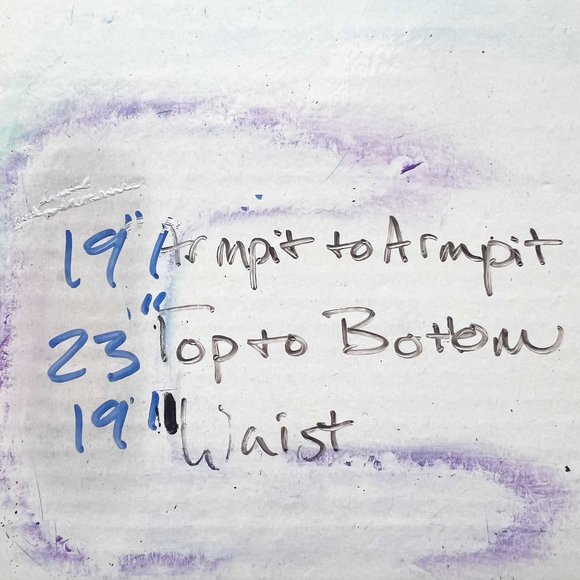 19" Armpit to Armpit
23" Top to Bottom
19" Waist